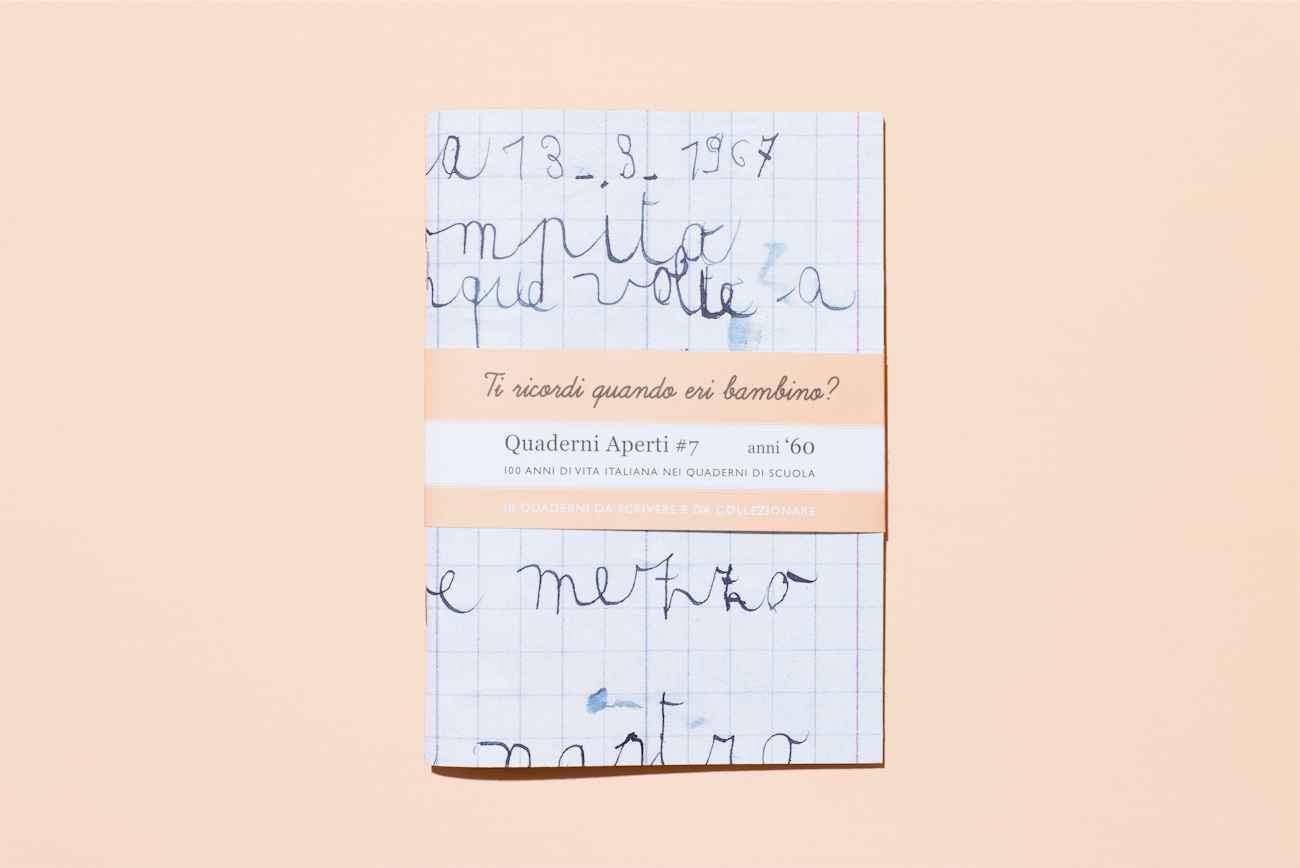 a 13_.9._ 1967
ompita
nque volte - a
Ti ricordi quando eri bambino?
Quaderni Aperti #7 anni ‘60
100 ANNI DI VITA ITALIANA NEI QUADERNI DI SCUOLA
10 QUADERNI DA SCRIVERE E DA COLLEZIONARE
e mezzo
nastro